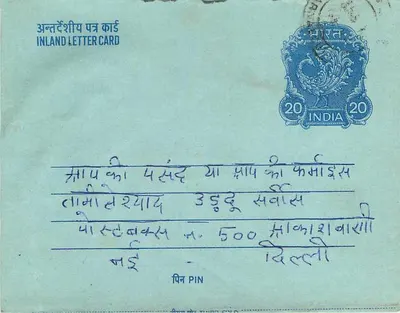 अन्तर्देशीय पत्र कार्ड
INLAND LETTER CARD
भारत
20 20
INDIA
आपकी पसंद या आप की फर्माइस
तामीलेश्याद उड़दू सर्वीस
पोस्टबक्स न. 500 आकाशवाणी
नई - दिल्ली
पिन PIN